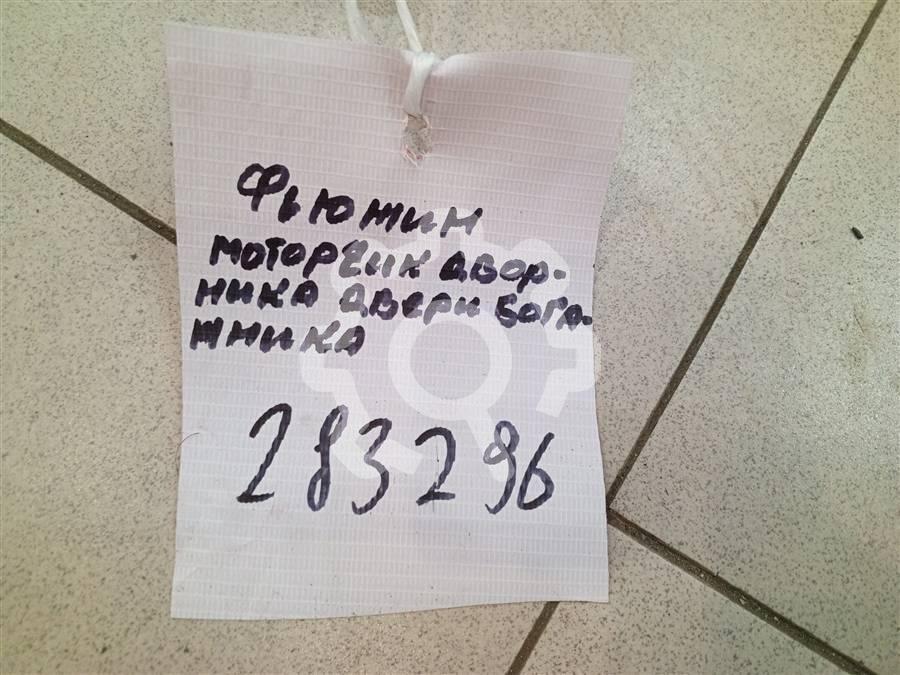 Фьюжин
моторчик двор-
ника двери бога-
жника
283296